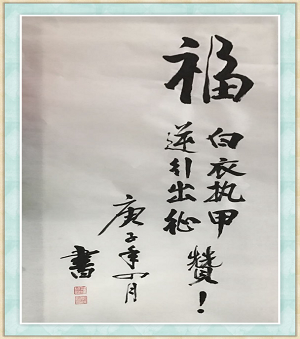 福
白衣执甲
逆行出征
贊！
庚子年四月
書